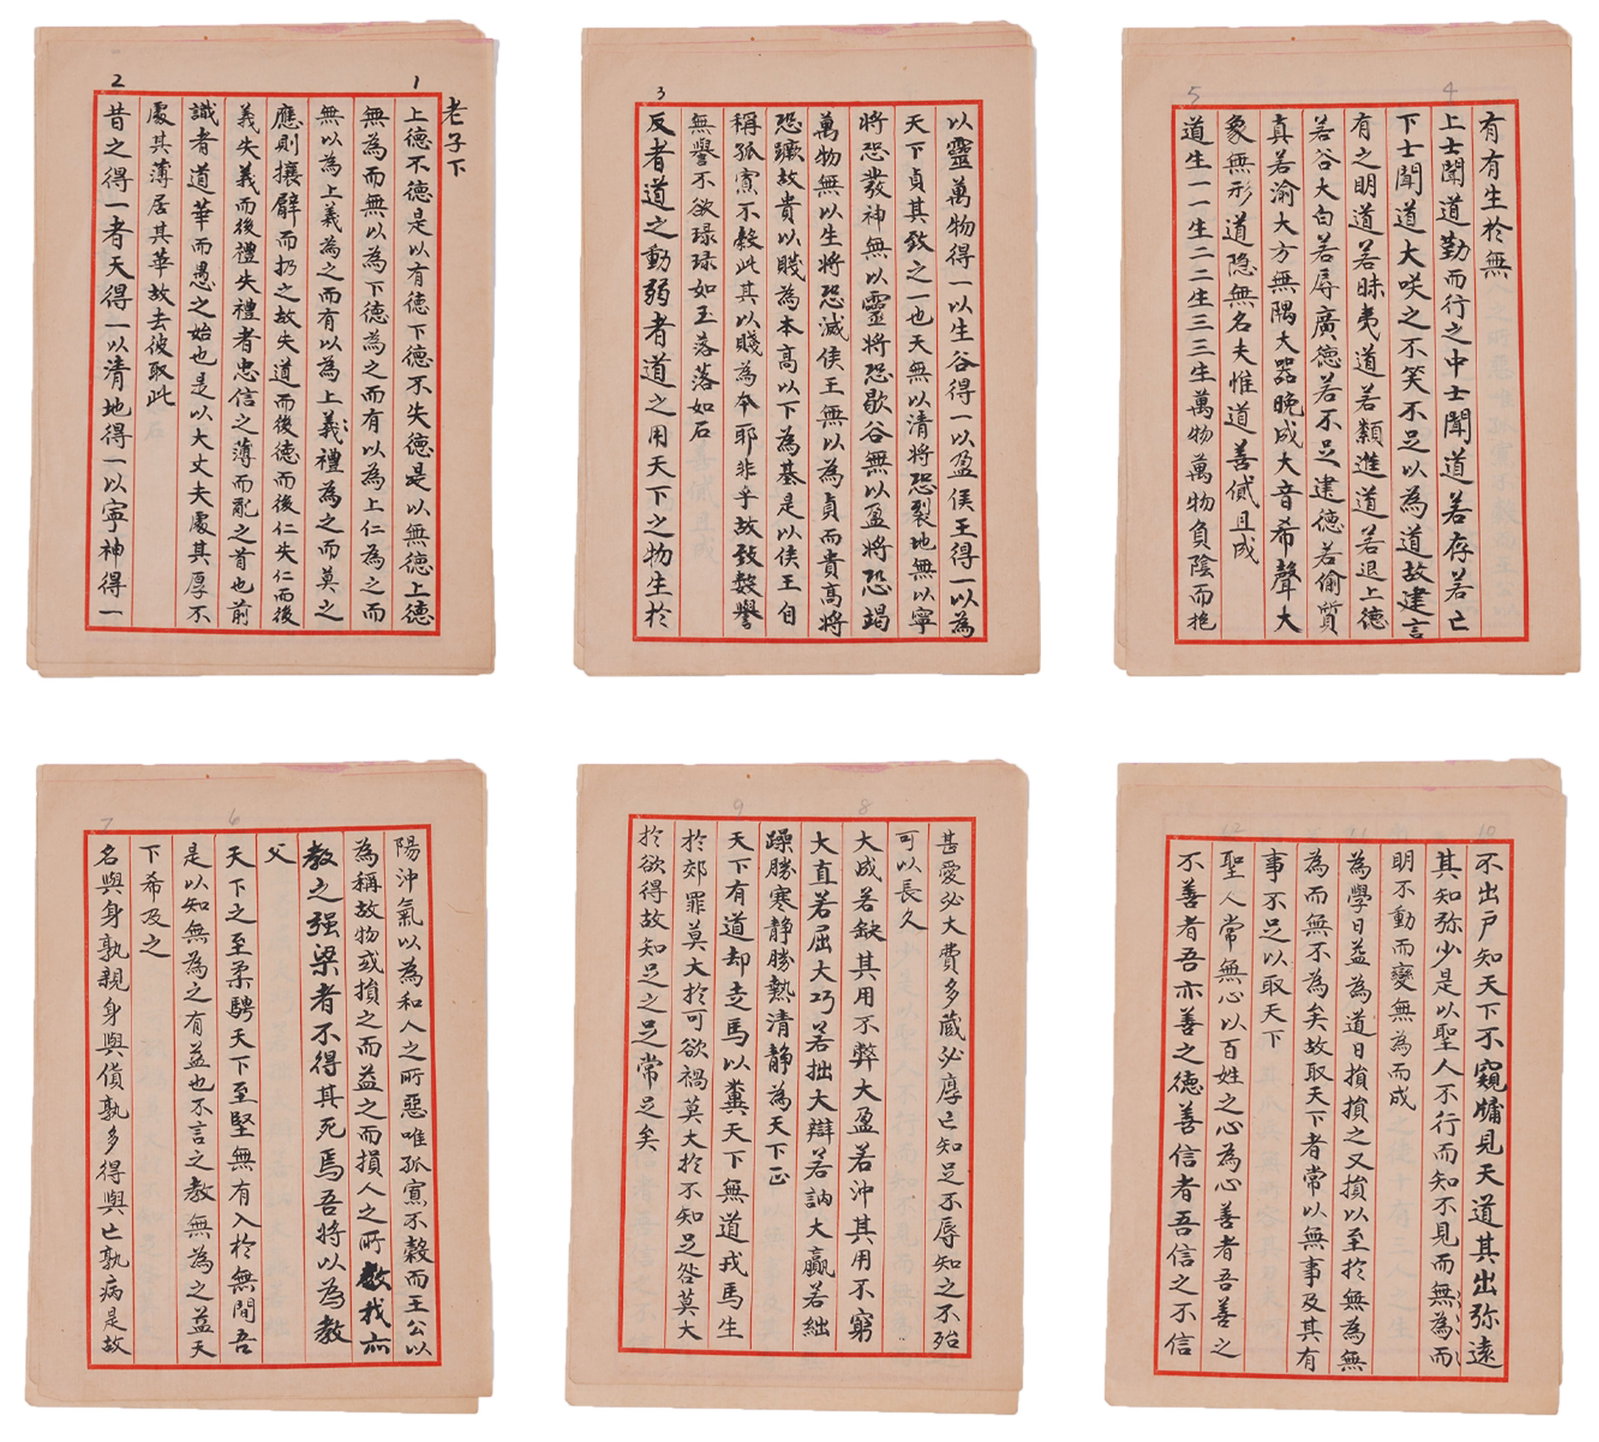 老子下
1
上德不德是以有德下德不失德是以無德上德
無為而無以為下德為之而有以為上仁為之而
無以為上義為之而有以為上義禮為之而莫之
應則攘臂而扔之故失道而後德而後仁失仁而後
義失義而後禮失禮者忠信之薄而亂之首也前
識者道華而愚之始也是以大丈夫處其厚不
處其薄居其華故去彼取此
2
昔之得一者天得一以清地得一以寧神得一
以靈萬物得一以生谷得一以盈侯王得一以為
天下貞其致之一也天無以清將恐裂地無以寧
將恐發神無以靈將恐歇谷無以盈將恐竭
萬物無以生將恐滅侯王無以為貞而貴高將
恐蹶故貴以賤為本高以下為基是以侯王自
稱孤寡不穀此其以賤為本耶非乎故致數譽
無譽不欲琭琭如玉落落如石
3
反者道之動弱者道之用天下之物生於
有有生於無
4
上士聞道勤而行之中士聞道若存若亡
下士聞道大咲之不笑不足以為道故建言
有之明道若昧夷道若纇進道若退上德
若谷大白若辱廣德若不足建德若偷質
真若渝大方無隅大器晚成大音希聲大
象無形道隐無名夫惟道善貸且成
5
道生一一生二二生三三生萬物萬物負陰而抱
陽沖氣以為和人之所惡唯孤寡不穀而王公以
為稱故物或損之而益之而損人之所教我亦
教之强梁者不得其死焉吾將以為教
父
6
天下之至柔騁天下至堅無有入於無間吾
是以知無為之有益也不言之教無為之益天
下希及之
7
名與身孰親身與貨孰多得與亡孰病是故
甚愛必大費多藏必厚亡知足不辱知之不殆
可以長久
8
大成若缺其用不弊大盈若沖其用不窮
大直若屈大巧若拙大辯若訥大贏若絀
躁勝寒静勝熱清静為天下正
9
天下有道却走馬以糞天下無道戎馬生
於郊罪莫大於可欲禍莫大於不知足咎莫大
於欲得故知足之足常足矣
10
不出戶知天下不窺牖見天道其出弥遠
其知弥少是以聖人不行而知不見而無為而
明不動而變無為而成
11
為學日益為道日損損之又損以至於無為無
為而無不為矣故取天下者常以無事及其有
事不足以取天下
12
聖人常無心以百姓之心為心善者吾善之
不善者吾亦善之德善信者吾信之不信